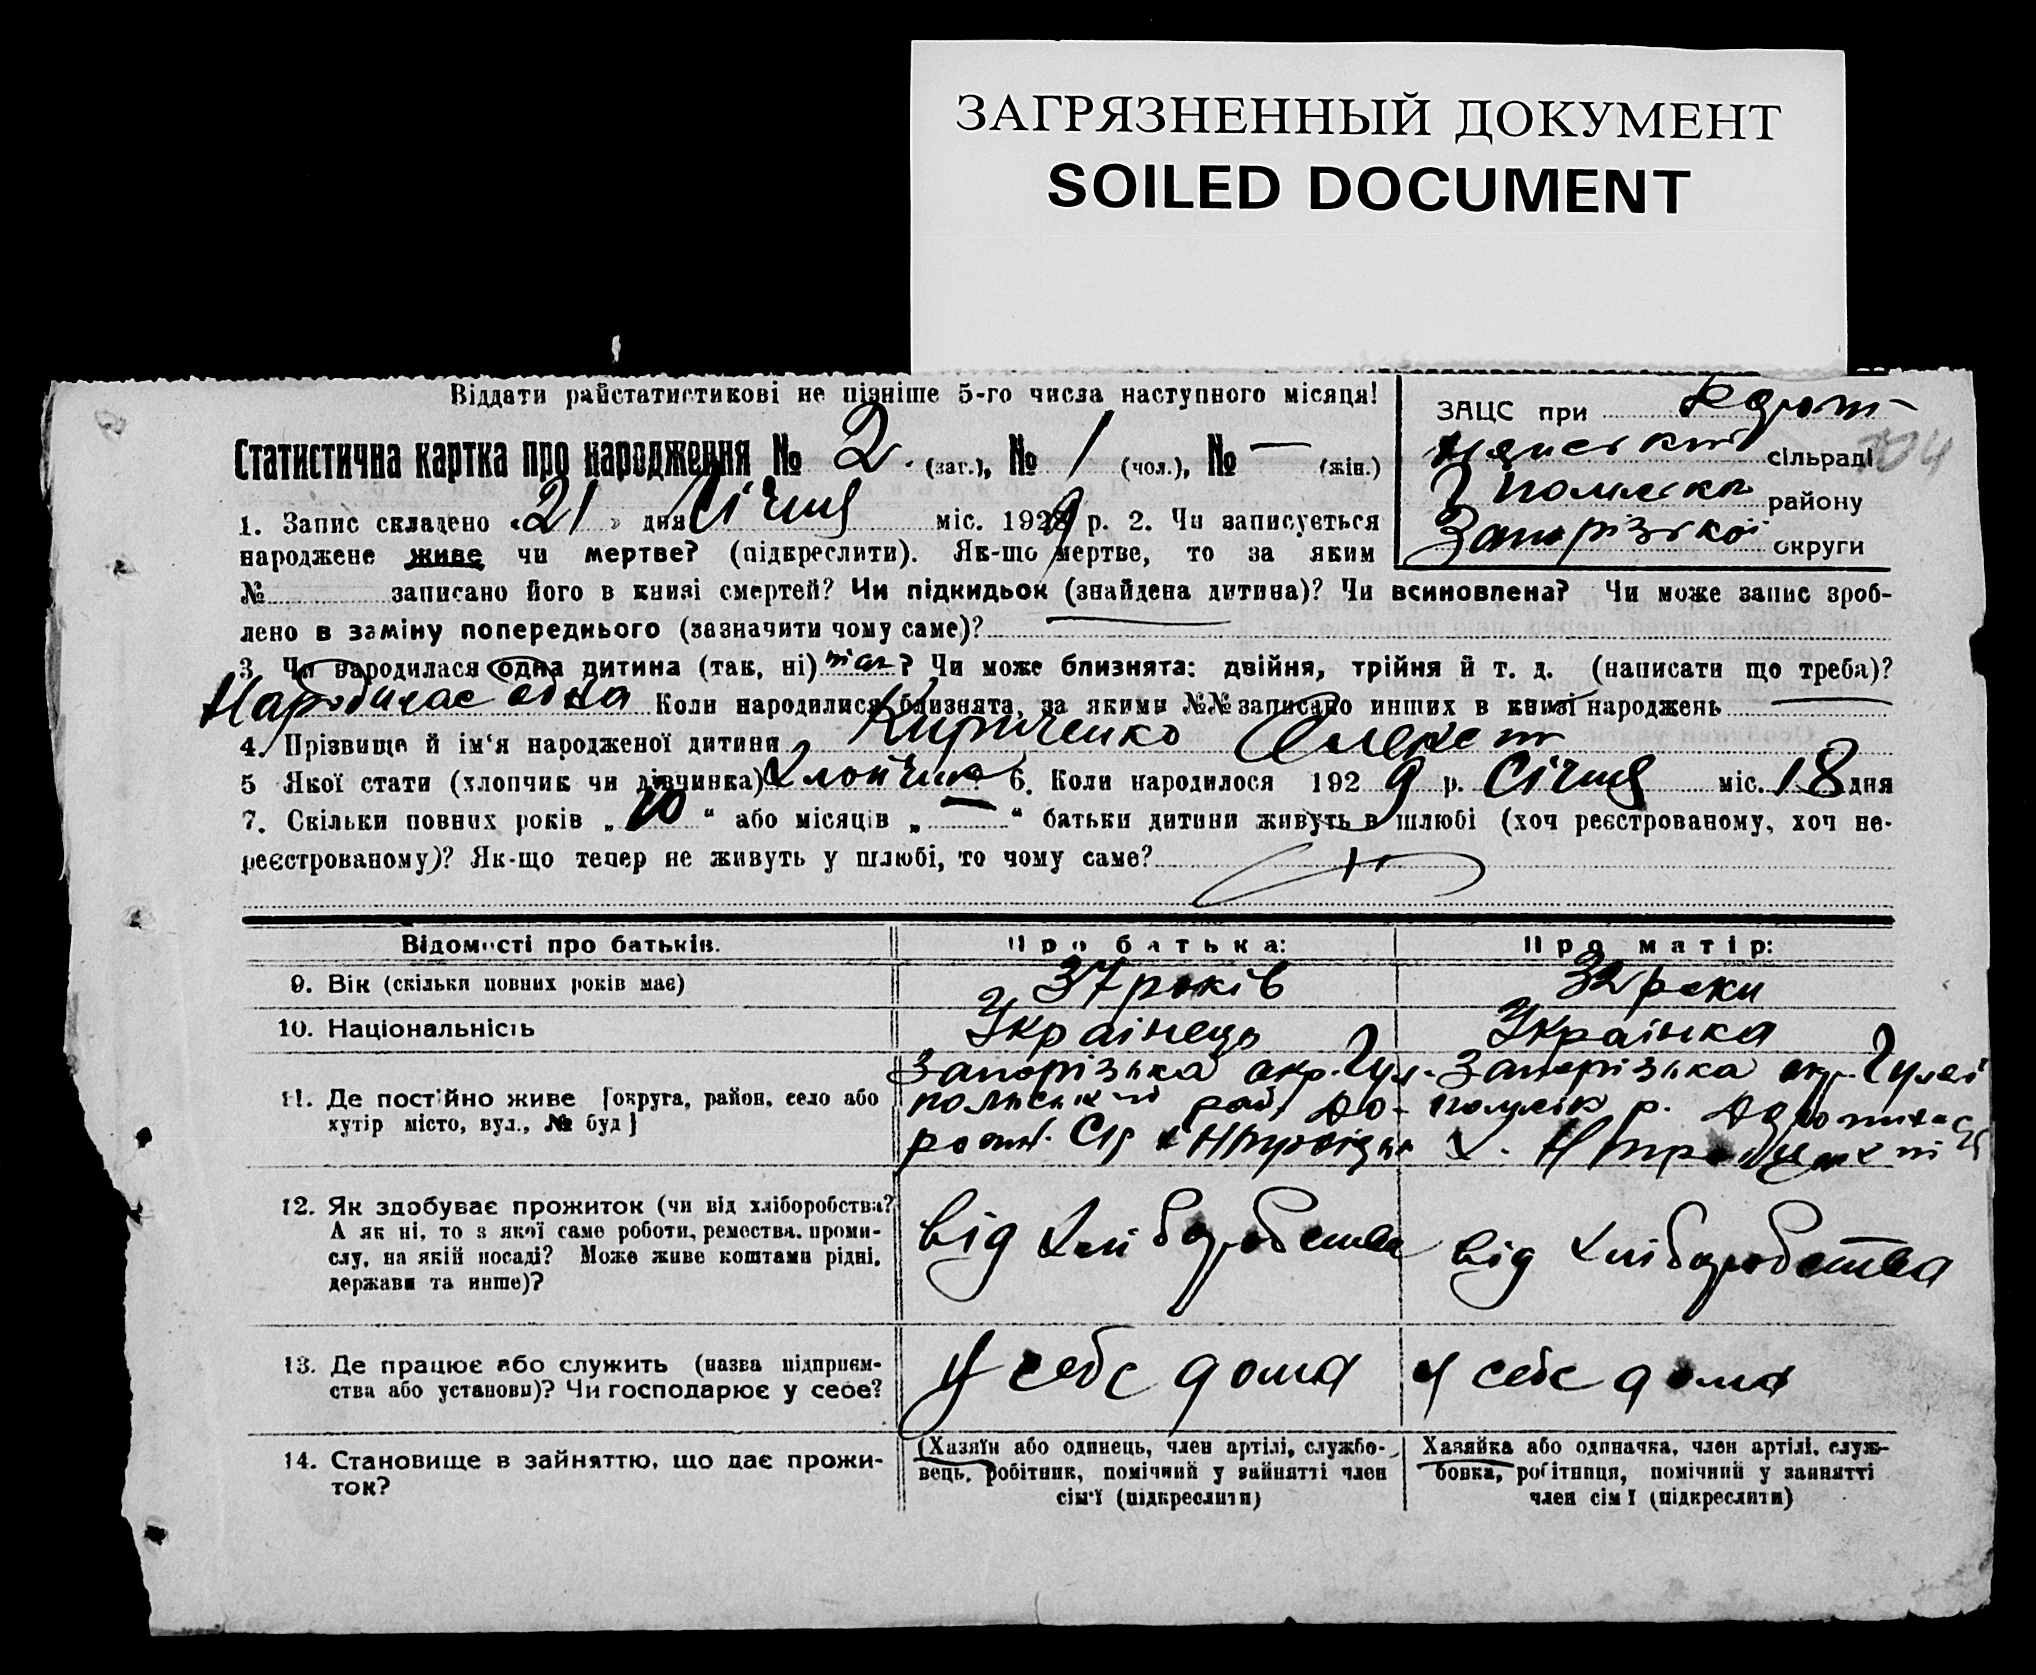 ЗАГРЯЗНЕННЫЙ ДОКУМЕНТ
SOILED DOCUMENT
Віддати райстатистикові не пізніше 5-го числа наступного місяця!
ЗАЦС при
сільраді
району
Запорізької округи
Статистична картка про народження № 2. (заг.), № 1 (чол.), № — (жін.)
1. Запис складено «21» дня Січня міс. 1929 р. 2. Чи записується
народжене живе чи мертве? (підкреслити). Як-що мертве, то за яким
№ записано його в книзі смертей? Чи підкидьок (знайдена дитина)? Чи всиновлена? Чи може запис зроб-
лено в заміну попереднього (зазначити чому саме)?
3. Чи народилася одна дитина (так, ні) так? Чи може близнята: двійня, трійня й т. д. (написати що треба)?
одна Коли народилися близнята, за якими №№ записано инших в книзі народжень
4. Прізвище й ім'я народженої дитини Кириченко
5 Якої стати (хлопчик чи дівчинка) Хлопчик 6. Коли народилося 1929 р. Січня міс. 18 дня
7. Скільки повних років „10“ або місяців „—“ батьки дитини живуть в шлюбі (хоч реєстрованому, хоч не-
реєстрованому)? Як-що тепер не живуть у шлюбі, то чому саме?
Відомості про батьків. Про батька: Про матір:
9. Вік (скільки повних років має) 37 років 32 роки
10. Національність Українець Українка
11. Де постійно живе [округа, район, село або
хутір місто, вул., № буд]
Запорізька окр. Гул-
польський рай.
Запорізька окр. Гуляй
12. Як здобуває прожиток (чи від хліборобства?
А як ні, то з якої саме роботи, ремества, проми-
слу, на якій посаді? Може живе коштами рідні,
держави та инше)?
від хліборобства від хліборобства
13. Де працює або служить (назва підприєм-
ства або установи)? Чи господарює у себе?
у себе дома у себе дома
14. Становище в зайняттю, що дає прожи-
ток?
(Хазяїн або одинець, член артілі, службо-
вець, робітник, помічний у зайнятті член
сім'ї (підкреслити)
Хазяйка або одиначка, член артілі, служ-
бовка, робітниця, помічний у зайнятті
член сім'ї (підкреслити)